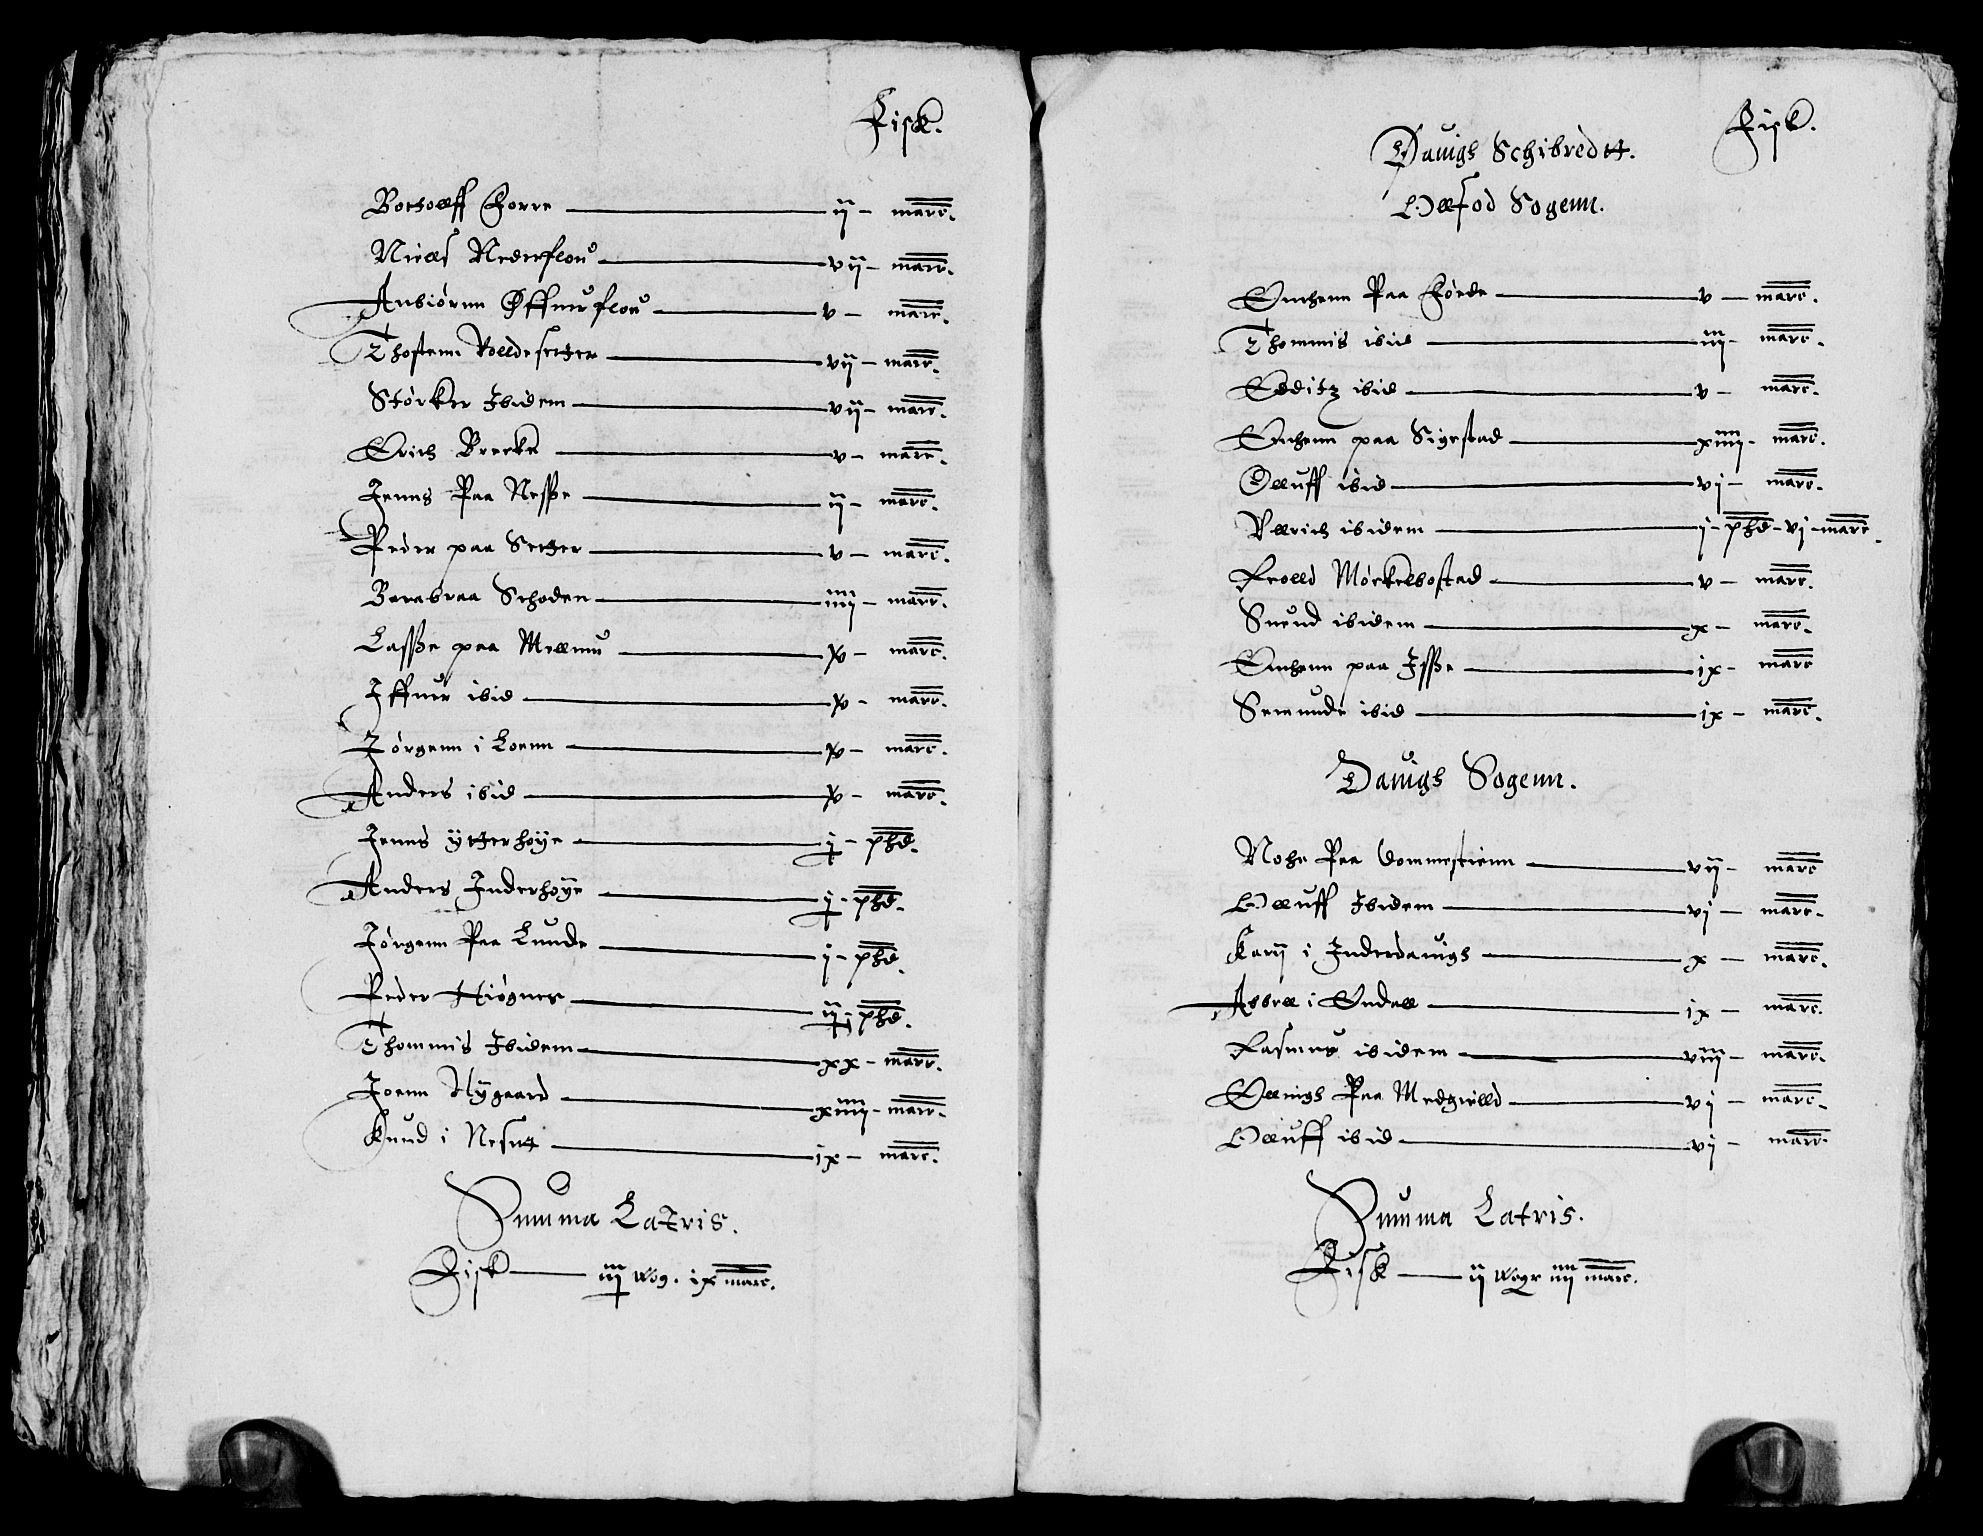 Fisk.
Botholff Forre — ij — marc.
Nielss Nederflou — vij — marc.
Anbiörnn Øffuerflou — v — marc.
Thostenn Volldesetter — vij — marc.
Störker Ibidem — vij — marc.
Erich Brecke — v — marc.
Jenns Paa Nesße — ij — marc.
Peder paa Setter — v — marc.
Barabraa Schoden — iiij — marc.
Lasße paa Mellmu — x — marc.
Iffuer ibid — x — marc.
Jörgenn i Loenn — x — marc.
Anders ibid — x — marc.
Jenns ÿtterhoÿe — j — phd.
Anders Inderhoÿe — j — phd.
Jörgenn Paa Lunde — j — phd.
Peder Hiögnes — ij phd.
Thommis Ibidem — xx — marc.
Joenn Nÿgaard — xiiij — marc.
Knud i Nesett — ix — marc.
Summa Latris.
Fisk — iij wog. ix marc.
Fisk.
Dauigs Schibredtt.
Ollfod Sogenn.
Enchenn Paa Förde — v — marc.
Thommis ibid — iij — marc.
Edditz ibid — v — marc.
Enchenn paa Sigestad — xiiij — marc.
Olluff ibid — vj — marc.
Vllrich ibidem — j — phd — vj — marc.
Frolld Mörkelbostad — v — marc.
Suend ibidem — x — marc.
Enchenn paa Isße — ix — marc
Semunde ibid — ix — marc.
Dauigs Sogenn.
Nohe Paa Dommestienn — vij — marc
Olluff Ibidem — vj — marc.
Karij i Inderdauigs — x — marc.
Abrell i Endall — ix — marc.
Rasmus ibidem — viij — marc.
Ellnigs Paa Medgielld — vj — marc.
Olluff ibid — vj — marc.
Summa Latris.
Fisk — ij woger iiij marc.